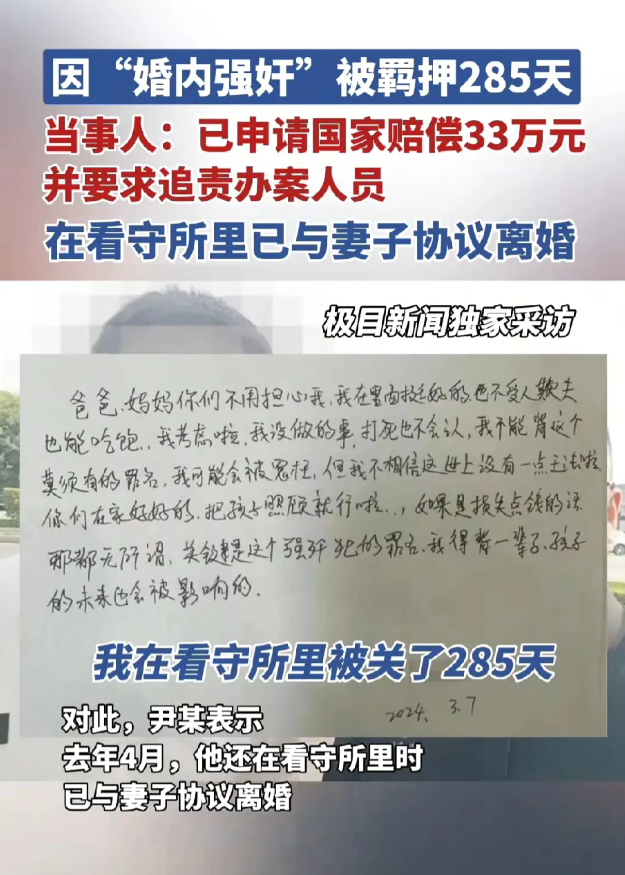 因“婚内强奸”被羁押285天
当事人：已申请国家赔偿33万元
并要求追责办案人员
在看守所里已与妻子协议离婚
极目新闻独家采访
爸爸、妈妈你们不用担心我，我在里面挺好的，也不受人欺负
也能吃饱，我考虑啦，我没做的事，打死也不会认，我不能背这个
莫须有的罪名，我可能会被冤枉，但我不相信这世上没有一点王法啦
你们在家好好的，把孩子照顾就行啦..，如果是损失点钱的话
那都无所谓，关键是这个强歼犯的罪名，我得背一辈子，孩子
的未来也会被影响的．
我在看守所里被关了285天
2024. 3.7
对此，尹某表示
去年4月，他还在看守所里时
已与妻子协议离婚